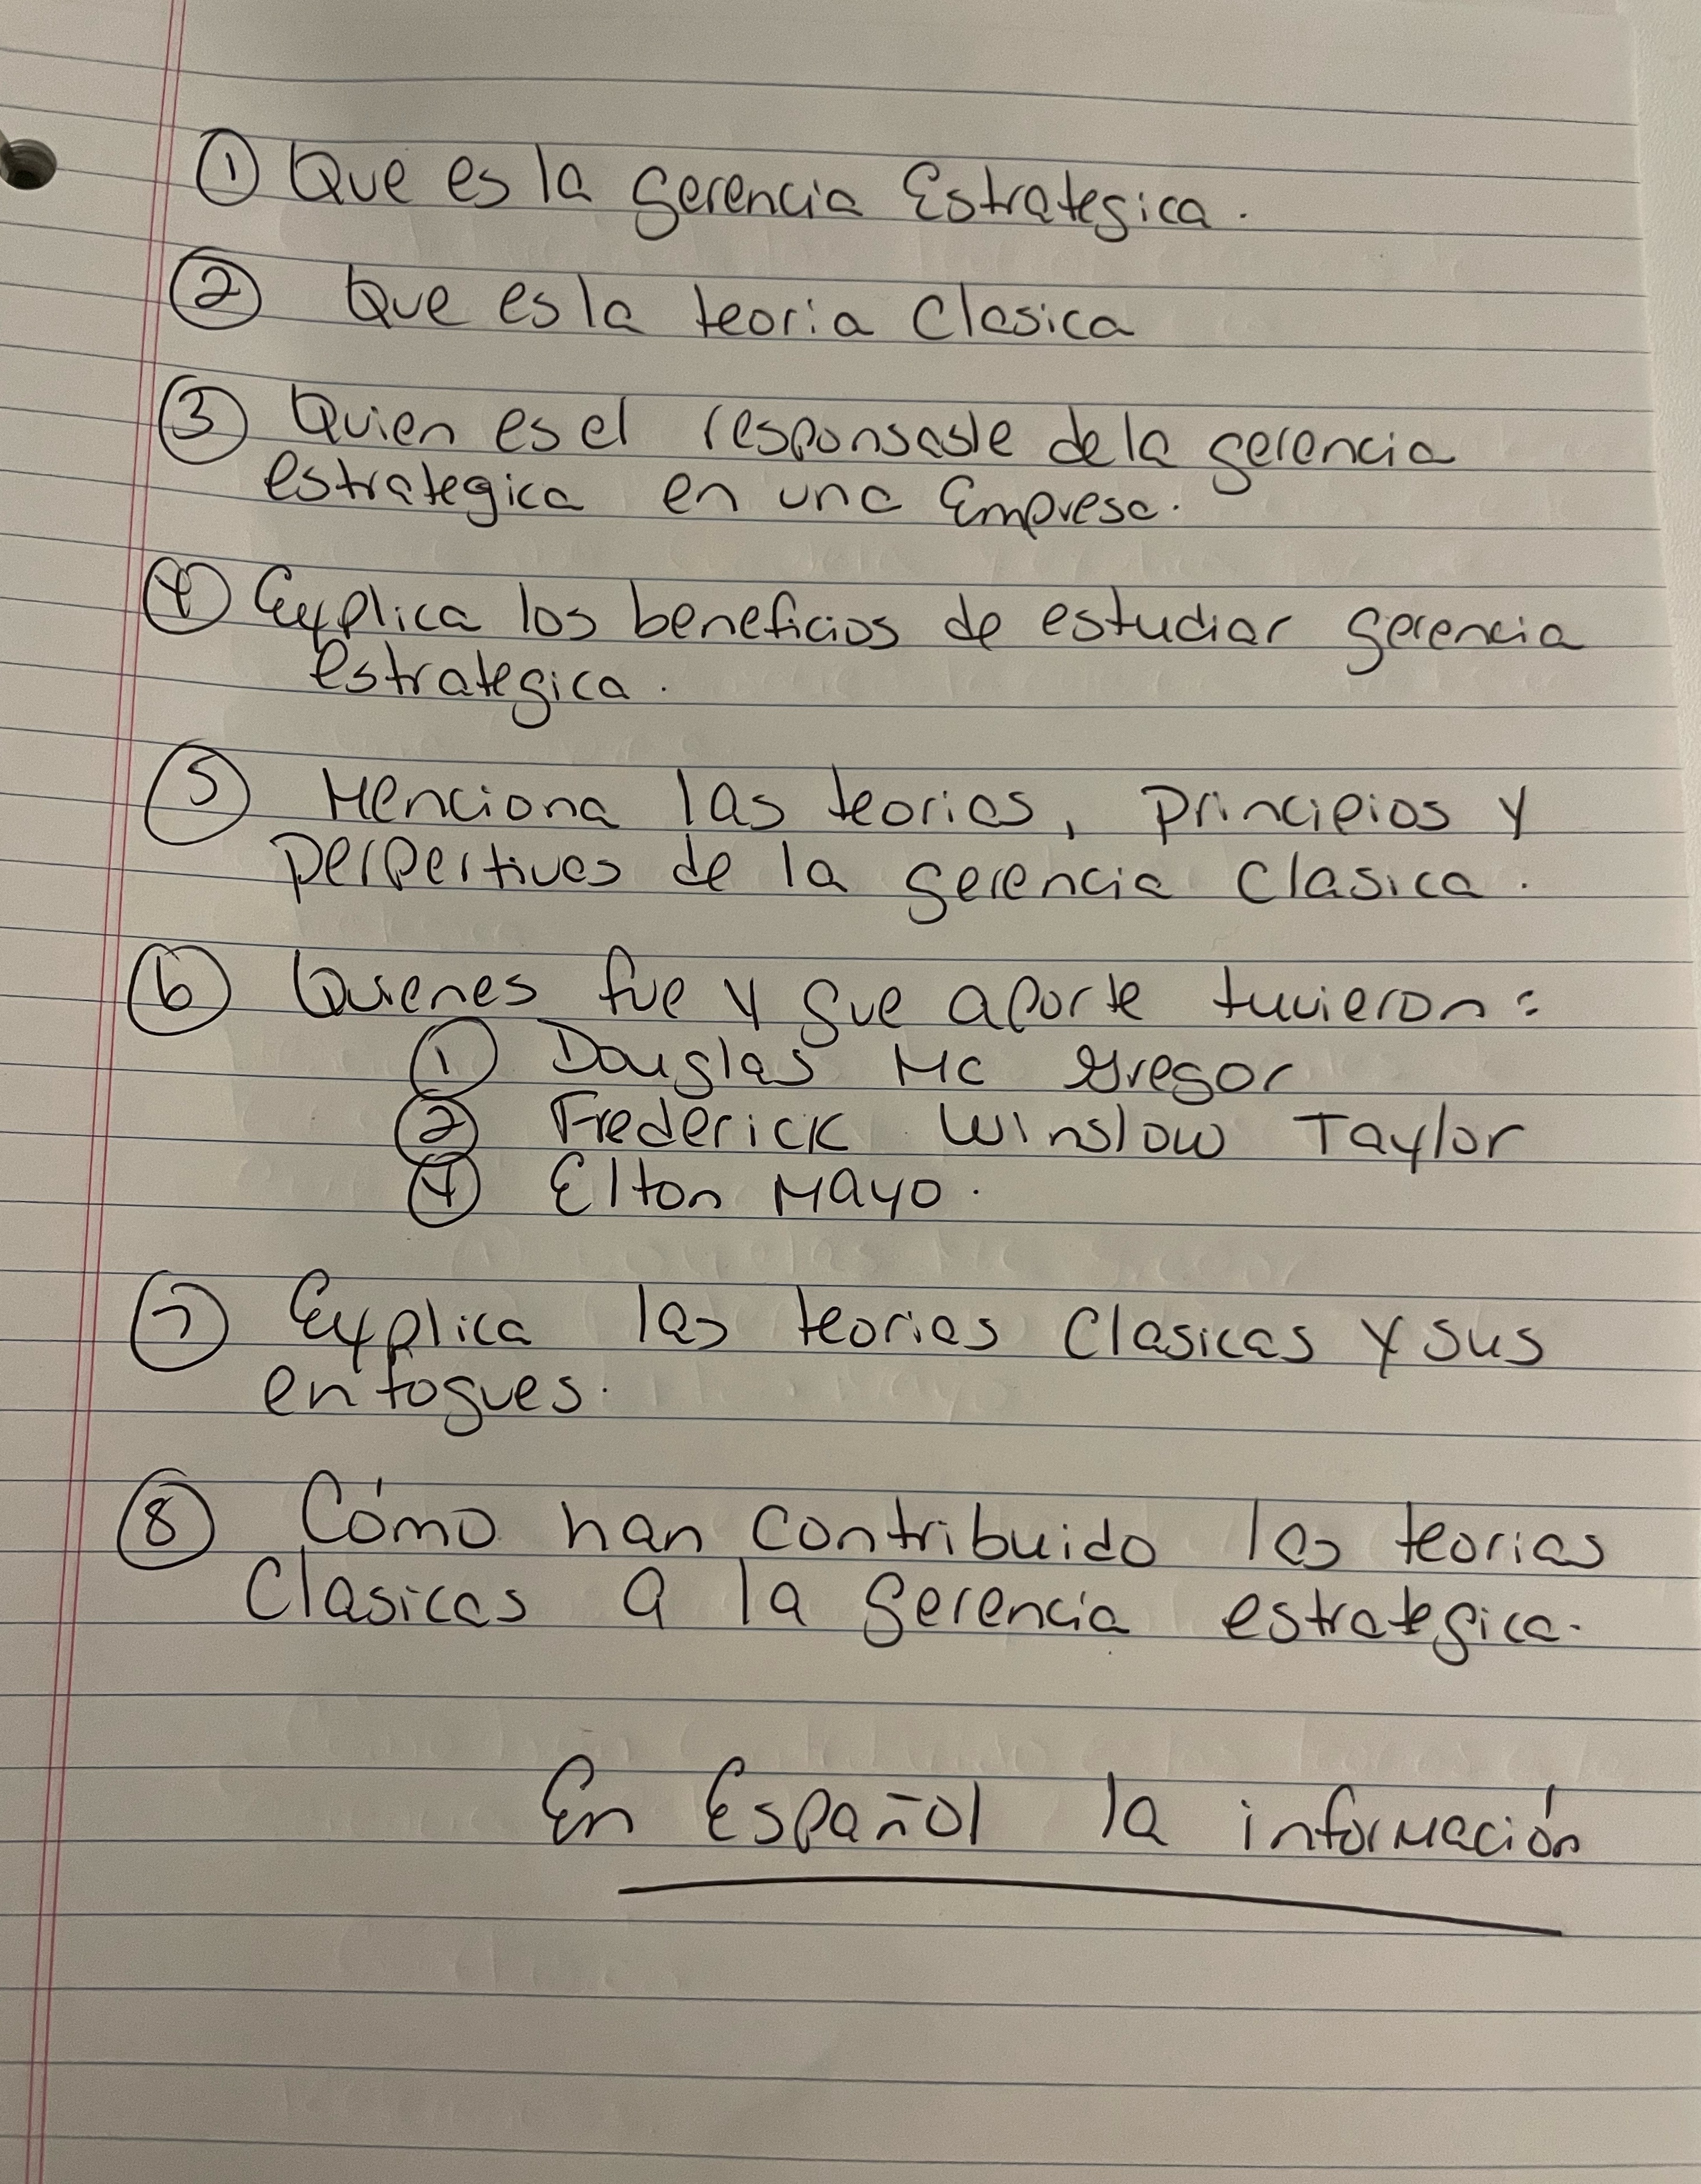 ① Que es la gerencia Estrategica.
② Que es la teoria Clasica
③ Quien es el responsable de la gerencia
estrategica en una Empresa.
④ Explica los beneficios de estudiar gerencia
estrategica.
⑤ Menciona las teorias, principios y
perpertivas de la gerencia Clasica.
⑥ Quienes fue y que aporte tuvieron:
① Douglas Mc Gregor
② Frederick Winslow Taylor
④ Elton Mayo.
⑦ Explica las teorias Clasicas y sus
enfoques.
⑧ Cómo han contribuido las teorias
Clasicas a la gerencia estrategica.
En Español la información